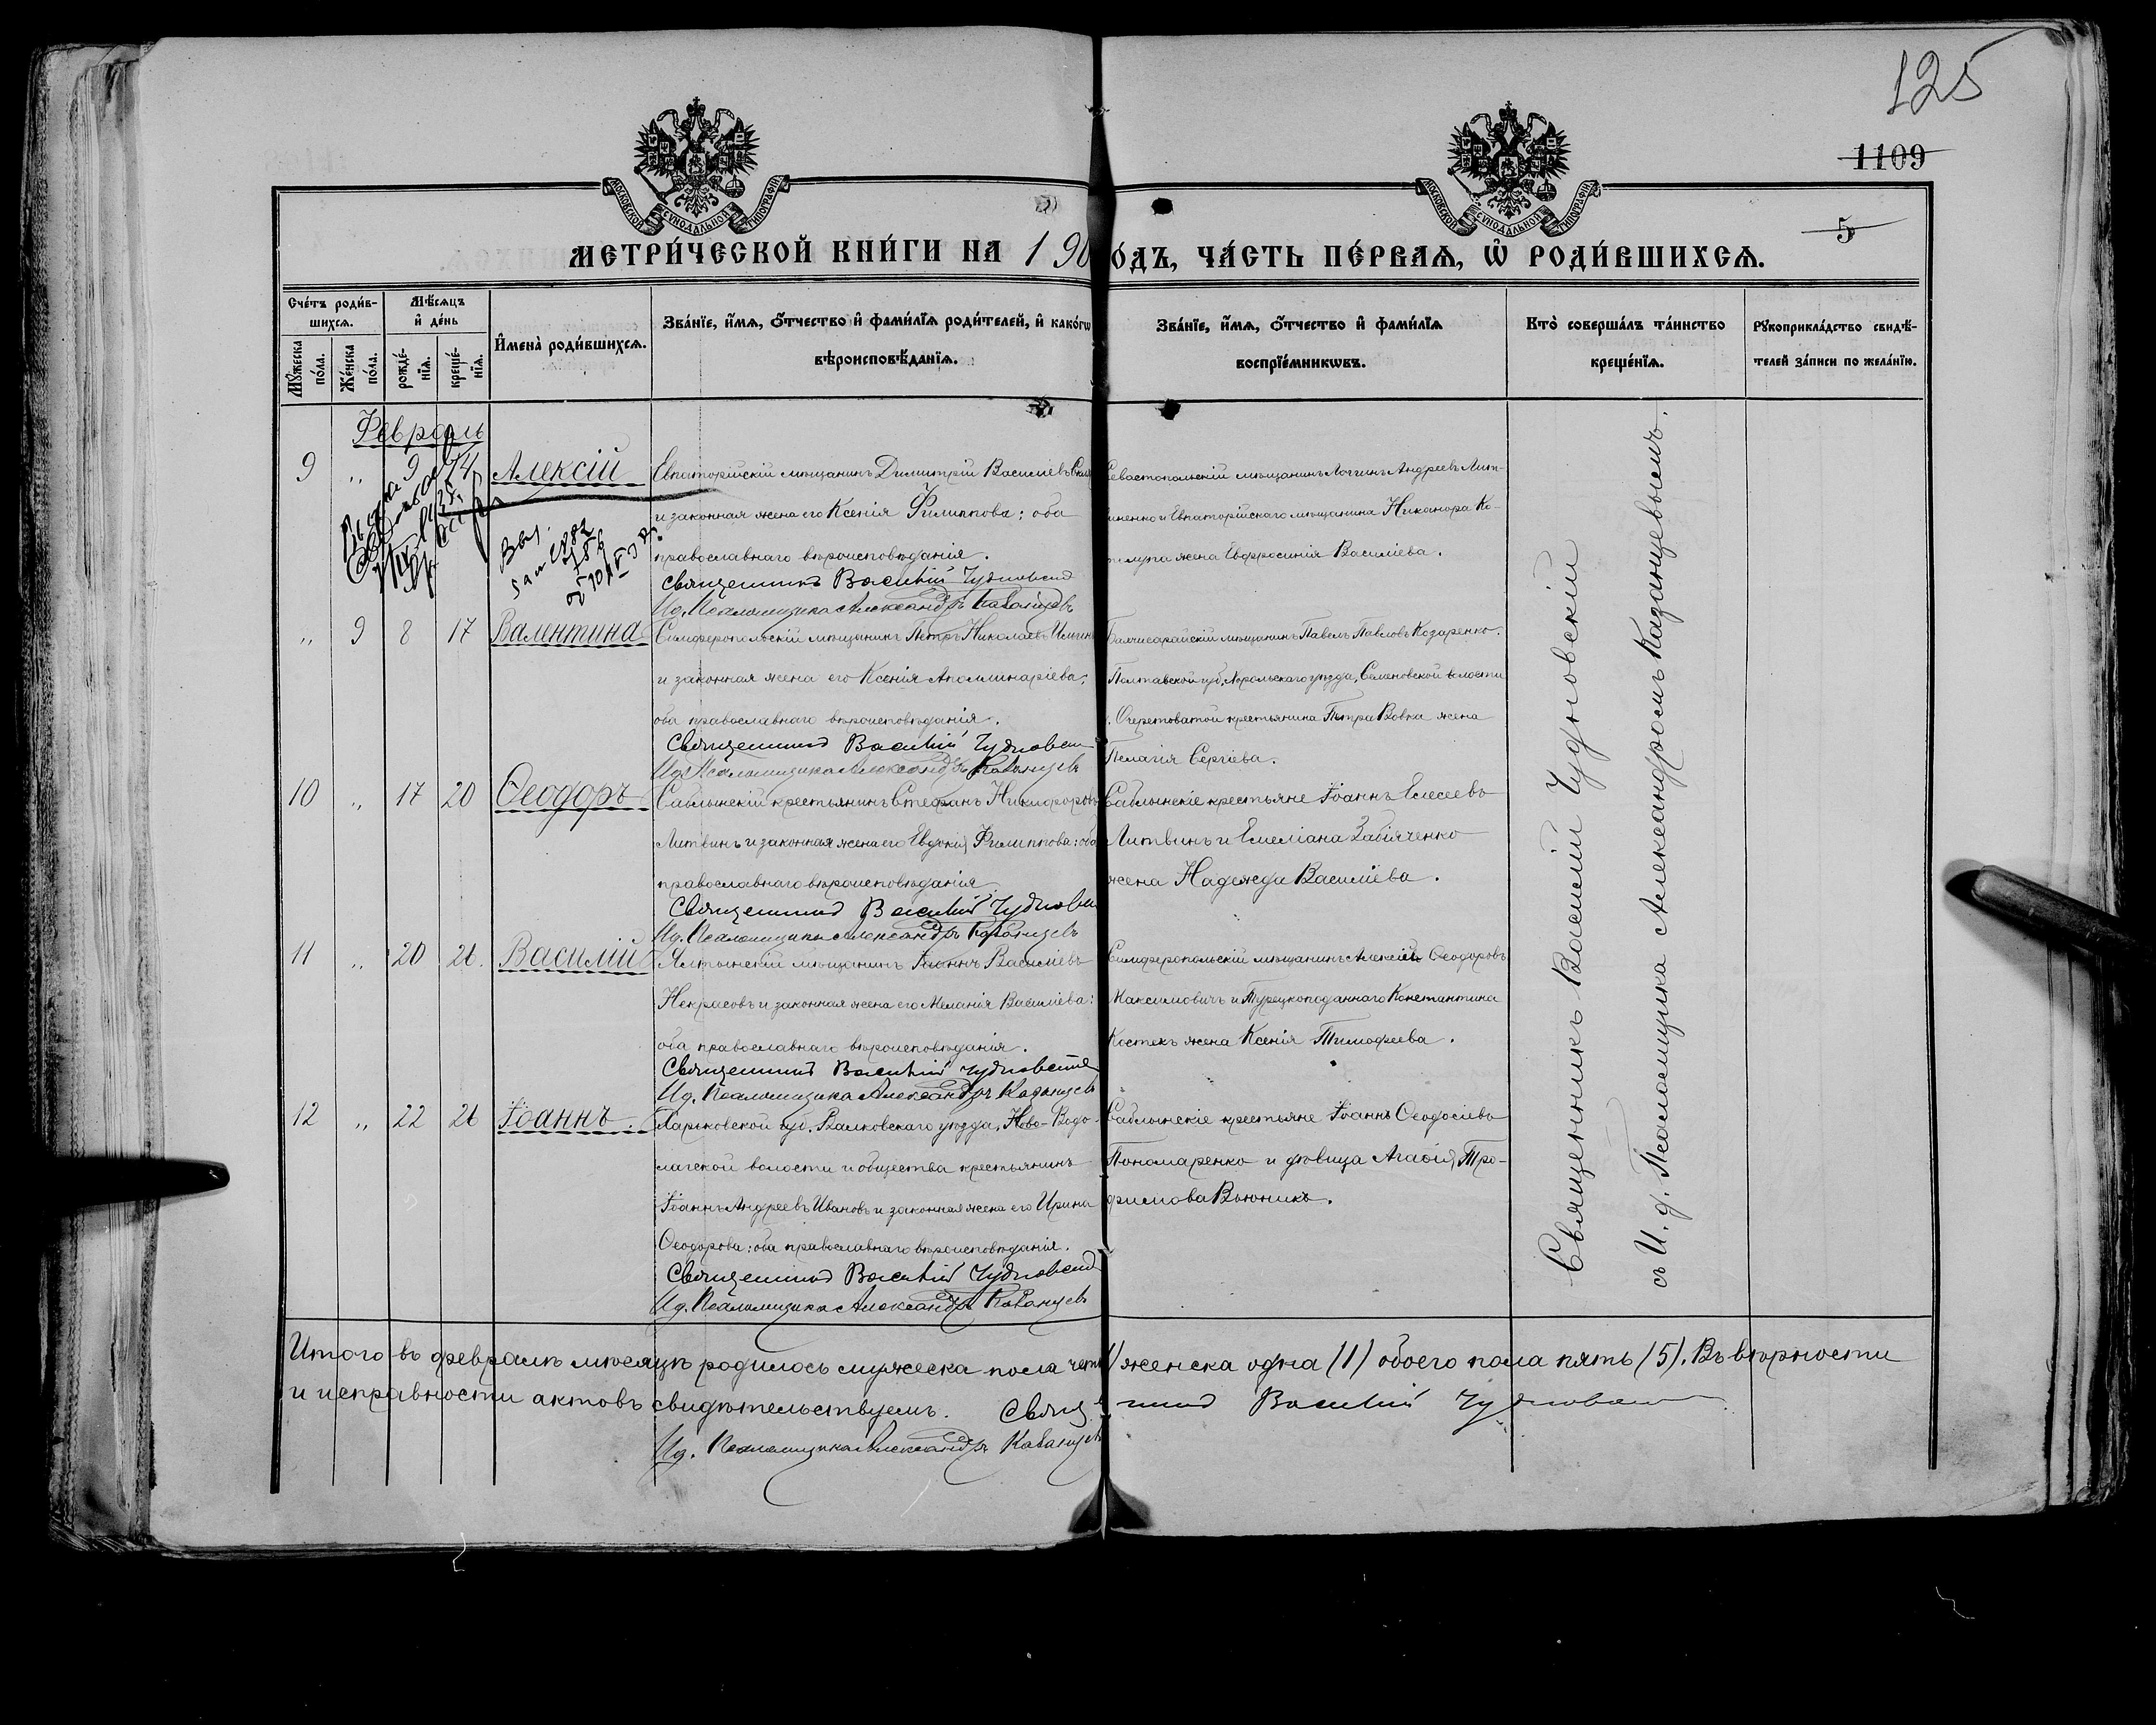 125
1109
5
МОСКОВСКОЙ СѴНОДАЛЬНОЙ ТИПОГРАФІИ
МОСКОВСКОЙ СѴНОДАЛЬНОЙ ТИПОГРАФІИ
МЕТРИ́ЧЕСКОЙ КНИ́ГИ НА 190
О́ДЪ, ЧА́СТЬ ПЕ́РВАѦ, Ѽ РОДИ́ВШИХСѦ.
Сче́тъ роди́в-
шихсѧ.
Мꙋ́жеска по́ла.
Же́нска по́ла.
Мѣ́сѧцъ
и҆ де́нь
рожде́-нїѧ.
креще́-нїѧ.
И҆мена̀ роди́вшихсѧ.
Зва́нїе, и҆́мѧ, ѻ҆́тчество и҆ фами́лїѧ роди́телей, и҆ како́гѡ
вѣроисповѣ́данїѧ.
Зва́нїе, и҆́мѧ, ѻ҆́тчество и҆ фами́лїѧ
воспрїе́мникѡвъ.
Кто̀ соверша́лъ та́инство
креще́нїѧ.
Рꙋкоприкла́дство свидѣ́-
телей за́писи по жела́нїю.
Февраль
9 „ 9 14 Алексій
Евпаторійскій мѣщанинъ Димитрій Василіевъ
и законная жена его Ксенія Филиппова: оба
православнаго вѣроисповѣданія.
Священникъ Василій Чудновскій
И д. Псаломщика Александръ Казанцевъ
Севастопольскій мѣщанинъ Логгинъ Андреевъ Лит-
виненко и Евпаторійскаго мѣщанина Никанора Ко-
жена Евфросинія Василіева.
„ 9 8 17 Валентина
Симферопольскій мѣщанинъ Петръ Николаевъ
и законная жена его Ксенія Аполлинаріева:
оба православнаго вѣроисповѣданія.
Священникъ Василій Чудновскій
И д. Псаломщика Александръ Казанцевъ
Бахчисарайскій мѣщанинъ Павелъ Павловъ Козаренко.
Полтавской губ., Хорольскаго уѣзда, Семеновской волости
Очеретоватой крестьянина Петра Вовка жена
Пелагія Сергіева.
10 „ 17 20 Ѳеодоръ
Саблынскій крестьянинъ Стефанъ Никифоровъ
Литвинъ и законная жена его Евдокія Филиппова: оба
православнаго вѣроисповѣданія.
Священникъ Василій Чудновскій
И д. Псаломщика Александръ Казанцевъ
Саблынскіе крестьяне Іоаннъ Елесеевъ
Литвинъ и Емеліана Забіяченко
жена Надежда Василіева.
11 „ 20 26. Василій
Ялтынскій мѣщанинъ Іоаннъ Василіевъ
Некрасовъ и законная жена его Меланія Василіева:
оба православнаго вѣроисповѣданія.
Священникъ Василій Чудновскій
И д. Псаломщика Александръ Казанцевъ
Симферопольскій мѣщанинъ Алексій Ѳеодоровъ
Максимовичъ и Турецкоподаннаго Константина
Костекъ жена Ксенія Тимофеева.
12 „ 22 26 Іоаннъ.
Харьковской губ. Валковскаго уѣзда, Ново-Водо-
лагской волости и общества крестьянинъ
Іоаннъ Андреевъ Ивановъ и законная жена его Ирина
Ѳеодорова: оба православнаго вѣроисповѣданія.
Священникъ Василій Чудновскій
И д. Псаломщика Александръ Казанцевъ
Саблынскіе крестьяне Іоаннъ Ѳеодосіевъ
Пономаренко и дѣвица Агафія Тро-
фимова Вьюникъ.
Священникъ Василій Чудновскій
съ И. д. Псаломщика Александромъ Казанцевымъ.
Итого въ февралѣ мѣсяцѣ родилось мужеска пола четы женска одна (1) обоего пола пять (5). Въ вѣрности
и исправности актовъ свидѣтельствуемъ. Священникъ Василій Чудновскій
И д. Псаломщика Александръ Казанцевъ